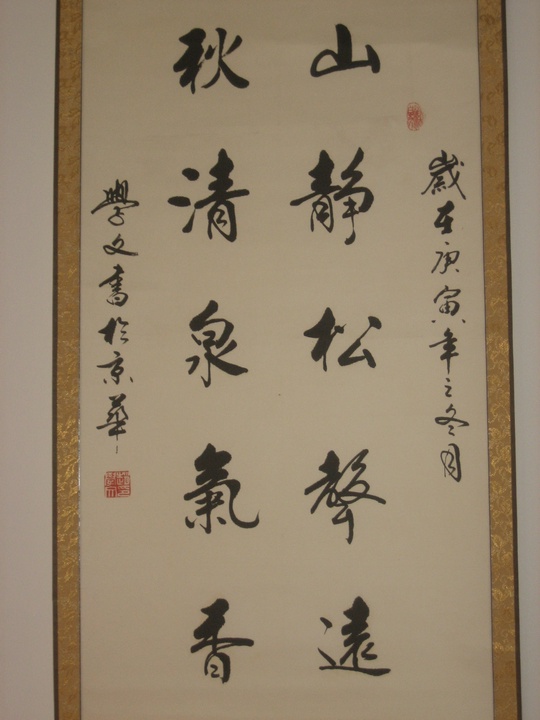 歲在庚寅年之冬月
山靜松聲遠
秋清泉氣香
學文書於京華